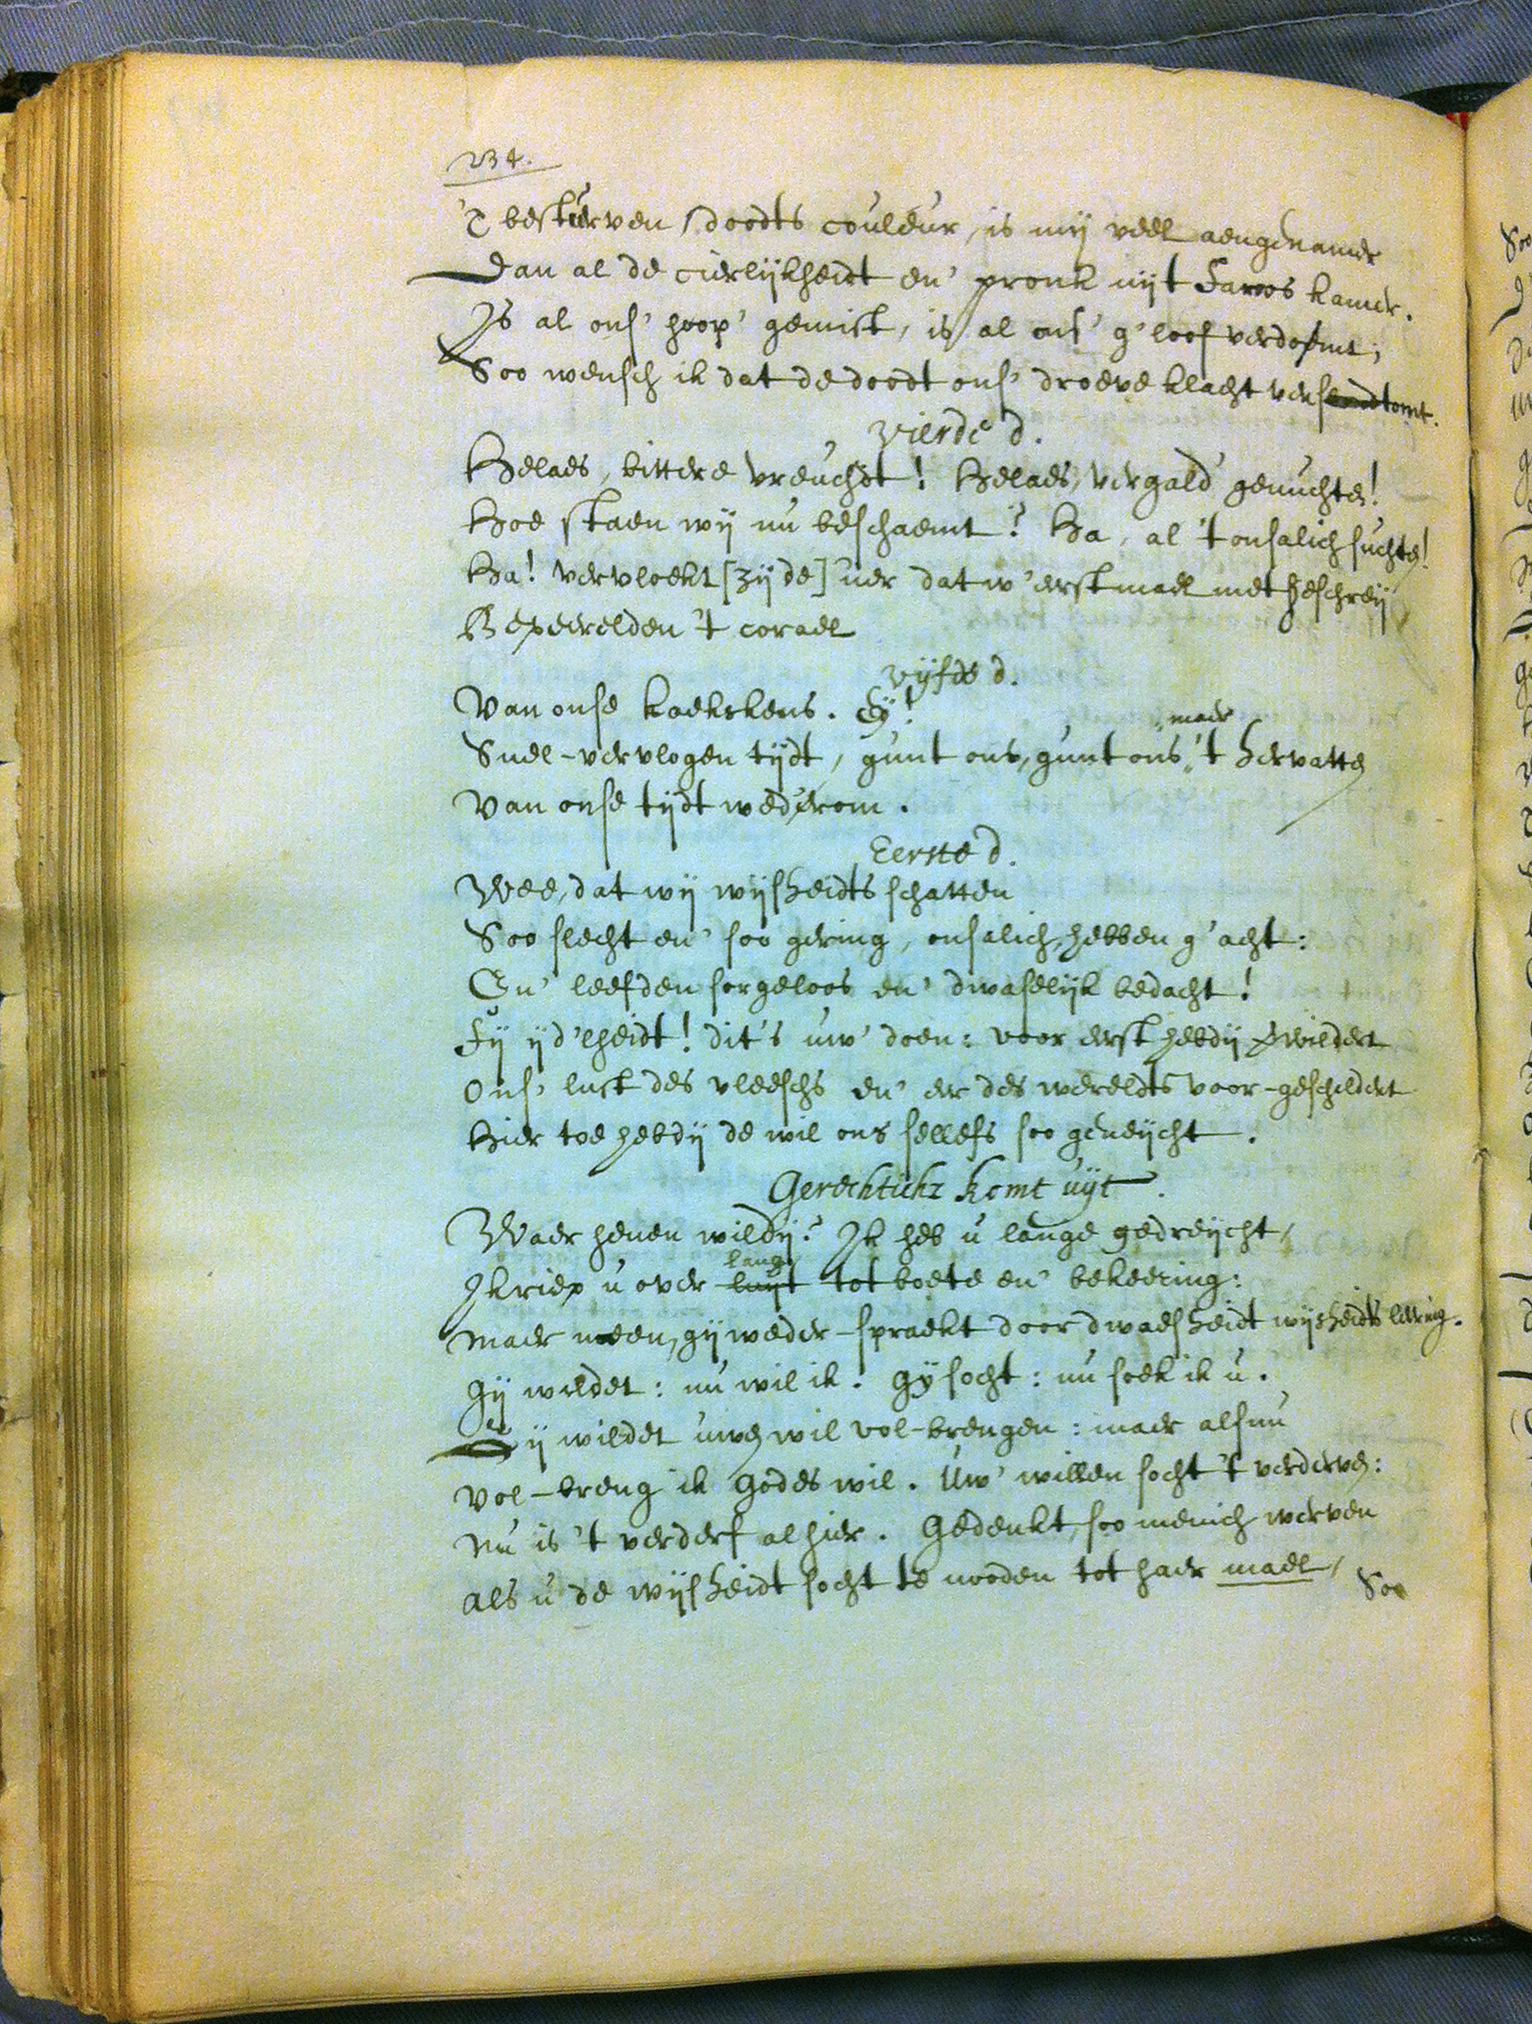 234.
'T besturven sdoodts couleur, is mij veel aengenamer
Dan al de cierlijkheidt en' pronk uijt Faroos kamer.
Is al ons' hoop' gemist, is al ons' g'loof verdoemt;
Soo wensch ik dat de doodt ons' droeve klacht
Vierde d.
Helaes, bittere vreuchdt! Helaes, vergald' genuchten!
Hoe staen wij nu beschaemt? Ha, al 't onsalich suchten!
Ha! vervloekt [zij de] uer dat w'erstmael met geschreij
Bepeerelden 't corael
Vijfde d.
Van onse kaekskens. Eij!
maer
Snel-vervlogen tijdt, gunt ons, gunt ons 't hervatten
Van onse tijdt wederom.
Eerste d.
Wee, dat wij wijsheidts schatten
Soo slecht en' soo gering, onsalich, hebben g'acht:
En' leefden sorgeloos en' dwaselijk bedacht!
Fij ijd'lheidt! dit's uw' doen: voor eerst hebdij verwildert
Ons' lust des vleeschs en' eer des wereldts voor-geschildert
Hier toe hebdij de wil ons sellefs soo geneijcht.
Gerechticht komt uijt.
Waer henen wildij? Ik heb u lange gedreijcht,
lang
Ik riep u over luijt tot boete en' bekeering:
Maer neen, gij weder-spraekt door dwaesheidt wijsheidts leering.
Gij wildet: nu wil ik. Gij socht: nu soek ik u.
Gij wildet uwen wil vol-brengen: maer alsnu
Vol-breng ik Godes wil. Uw' willen socht 't verderven:
Nu is 't verderf alhier. Gedenkt, soo menich werven
Als u de wijsheidt socht te nooden tot haer mael,
Soo